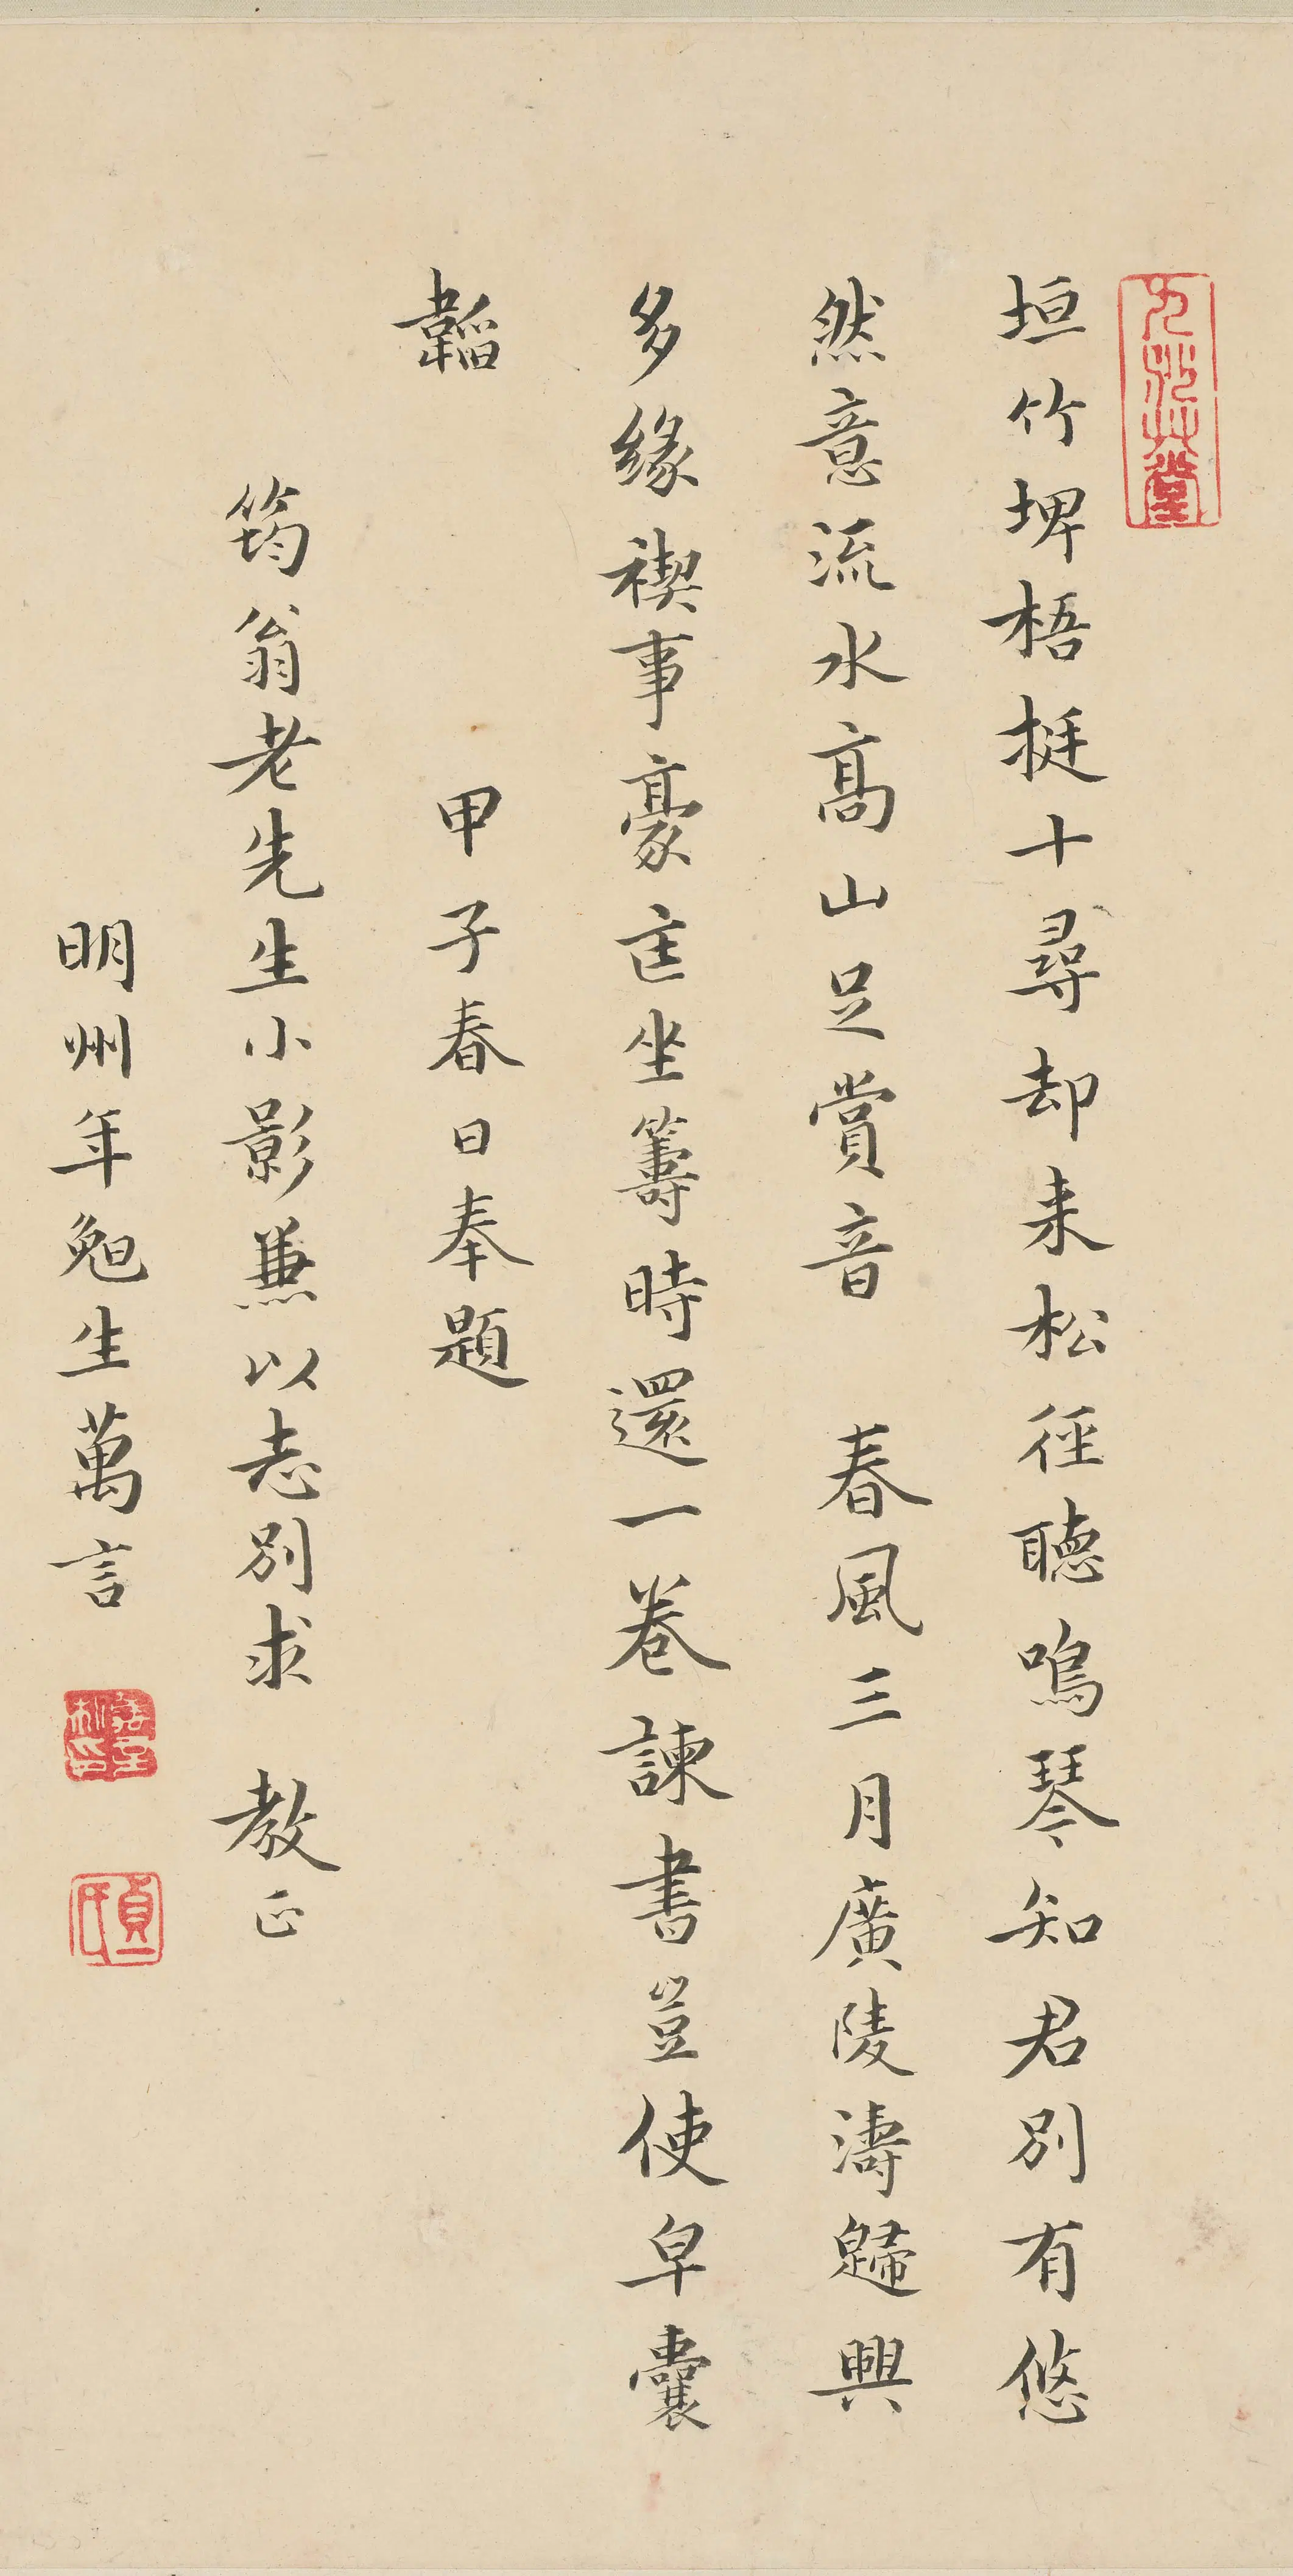 垣竹埤梧挺十尋却来松徑聽鳴琴知君別有悠
然意流水高山足賞音 春風三月廣陵濤歸興
多緣禊事豪匡坐籌時還一卷諫書豈使皁囊
韜
甲子春日奉題
筠翁老先生小影兼以志別求 教正
明州年勉生萬言
貞一氏